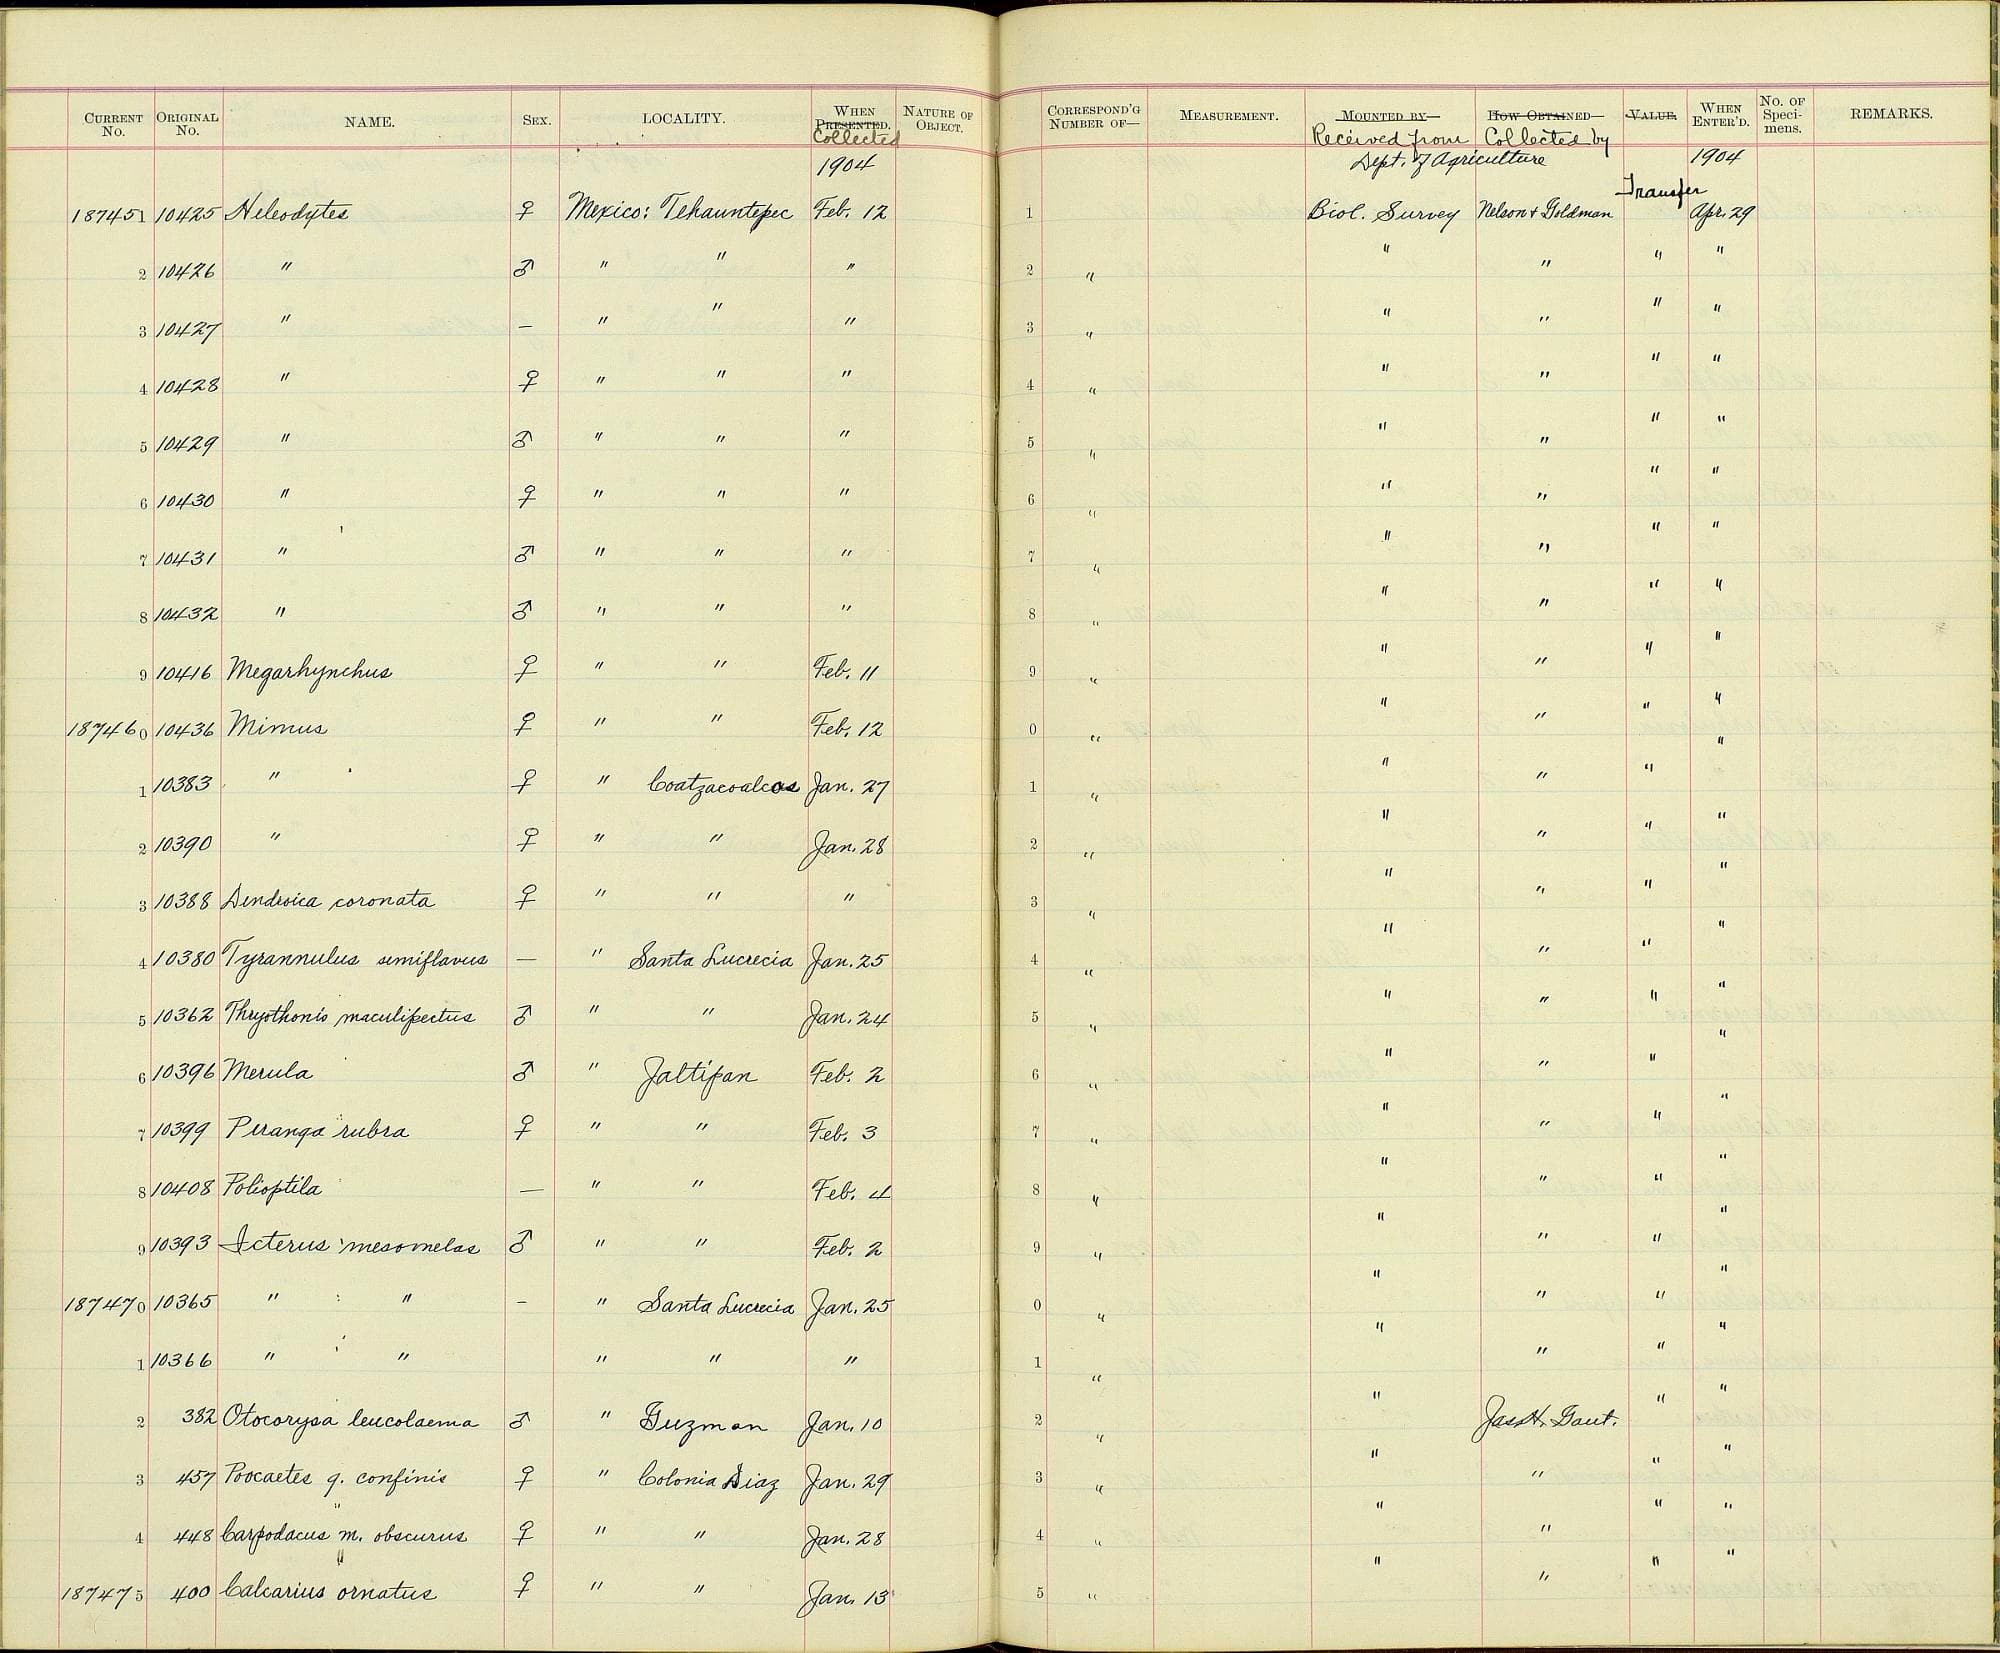 CURRENT No. ORIGINAL No. NAME. SEX. LOCALITY. WHEN PRESENTED. Collected NATURE OF OBJECT. CORRESPOND'G NUMBER OF— MEASUREMENT. MOUNTED BY— Received from HOW OBTAINED— Collected by VALUE. WHEN ENTER'D. No. OF Speci- mens. REMARKS.
1904 Dept. of Agriculture 1904
187451 10425 Heleodytes ♀ Mexico: Tehauntepec Feb. 12 1 Biol. Survey Nelson & Goldman Transfer Apr. 29
2 10426 " ♂ " " " 2 " " " " "
3 10427 " — " " " 3 " " " " "
4 10428 " ♀ " " " 4 " " " " "
5 10429 " ♂ " " " 5 " " " " "
6 10430 " ♀ " " " 6 " " " " "
7 10431 " ♂ " " " 7 " " " " "
8 10432 " ♂ " " " 8 " " " " "
9 10416 Megarhynchus ♀ " " Feb. 11 9 " " " " "
187460 10436 Mimus ♀ " " Feb. 12 0 " " " " "
1 10383 " ♀ " Coatzacoalcos Jan. 27 1 " " " " "
2 10390 " ♀ " " Jan. 28 2 " " " " "
3 10388 Dendroica coronata ♀ " " " 3 " " " " "
4 10380 Tyrannulus semiflavus — " Santa Lucrecia Jan. 25 4 " " " " "
5 10362 Thryothonis maculipectus ♂ " " Jan. 24 5 " " " " "
6 10396 Merula ♂ " Jaltipan Feb. 2 6 " " " " "
7 10399 Piranga rubra ♀ " " Feb. 3 7 " " " " "
8 10408 Polioptila — " " Feb. 4 8 " " " " "
9 10393 Icterus mesomelas ♂ " " Feb. 2 9 " " " " "
187470 10365 " " — " Santa Lucrecia Jan. 25 0 " " " " "
1 10366 " " " " " 1 " " " " "
2 382 Otocorysa leucolaema ♂ " Guzman Jan. 10 2 " " Jas. H. Gaut. " "
3 457 Poocaetes g. confinis ♀ " Colonia Diaz Jan. 29 3 " " " " "
4 448 Carpodacus m. obscurus ♀ " " Jan. 28 4 " " " " "
187475 400 Calcarius ornatus ♀ " " Jan. 13 5 " " " " "